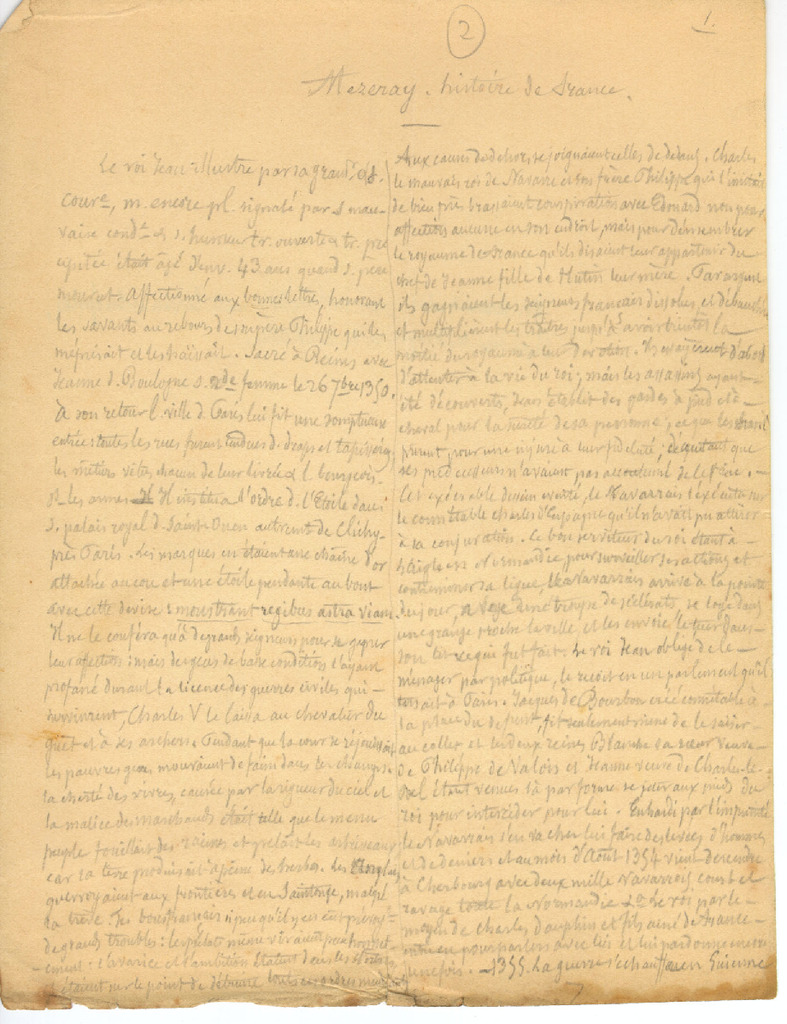 2
1.
Mezeray. histoire de France.
Le roi Jean illustre par sa grand. de
cour., m. encore pl. signalé par s. mau-
vaise cond. et s. humeur tr. ouverte et tr. pré
cipitée était âgé d'env. 43 ans quand s. père
mourut. Affectionné aux bonnes lettres, honorant
les savants au rebours de son père Philippe qui les
méprisait et les haïssait. Sacré à Reims avec
Jeanne d. Boulogne s. 2de femme le 26 7bre 1350.
A son retour l. ville d. Paris lui fit une somptueuse
entrée: toutes les rues furent tendues d. draps et tapisseries
les métiers vêtus chacun de leur livrée et l. bourgeois
s. les armes. Il institua l'ordre d. l'Etoile dans
s. palais royal d. Saint-Ouen autrement de Clichy-
près Paris. Les marques en étaient une chaîne d'or
attachée au cou et une étoile pendante au bout
avec cette devise: monstrant regibus astra viam.
Il ne le conféra qu'à de grands seigneurs pour se gagner
leur affection: mais des gens de basse condition l'ayant
profané durant la licence des guerres civiles qui
survinrent, Charles V le laissa au chevalier du
guet et à ses archers. Pendant que la cour se réjouissait
les pauvres gens mouraient de faim dans les champs
la cherté des vivres, causée par la rigueur du ciel et
la malice des marchands était telle que le menu
peuple fouillait des racines et pelait les arbrisseaux
car la terre produisait à peine de l'herbe. Les Anglais
guerroyaient aux frontières et en Saintonge, malgré
la trève.
de grands troubles: les prélats même vivaient
ement: l'avarice et l'ambition étaient dans les
étaient sur le point de détruire tous ces ordres
Aux causes du dehors, se joignaient celles de dedans. Charles
le mauvais roi de Navarre et son frère Philippe qui l'imitait
de bien près brassaient conspiration avec Edouard non pour
affection aucune en son endroit, mais pour démembrer
le royaume de France qu'ils disaient leur appartenir du
chef de Jeanne fille de Hutin leur mère. Par argent
ils gagnaient les seigneurs français dissolus et débauchés
et multiplièrent les traîtres jusqu'à avoir bientôt la
moitié du royaume à leur dévotion. Ils essayèrent d'abord
d'attenter à la vie du roi; mais les assassins ayant
été découverts, Jean établit des gardes à pied et à
cheval pour la sureté de sa personne, ce que les Français
prirent pour une injure à leur fidélité: d'autant que
ses prédécesseurs n'avaient pas accoutumé de le faire.
Cet exécrable dessin éventé, le Navarrais l'exécuta sur
le connétable Charles d'Espagne qu'il n'avait pu attirer
à sa conjuration. Ce bon serviteur du roi étant à
l'aigle en Normandie, pour surveiller ses actions et
contreminer sa ligue, le Navarrais arrive à la pointe
du jour, avec une troupe de scélérats, se loge dans
une grange proche la ville et les envoie le tuer dans
son lit ce qui fut fait. Le roi Jean obligé de le
ménager par politique, le reçoit en un parlement qu'il
tenait à Paris. Jacques de Bourbon créé connétable à
la place du défunt, fit seulement mine de le saisir
au collet et les deux reines Blanche sa sœur veuve
de Philippe de Valois et Jeanne veuve de Charles-le-
Bel étant venues là par forme se jeter aux pieds du
roi pour intercéder pour lui. Enhardi par l'impunité
le Navarrais s'en va chez lui faire des levées d'hommes
et de deniers et au mois d'Août 1354 vient descendre
à Cherbourg avec deux mille Navarrois court et
ravage toute la Normandie. Le roi par le
moyen de Charles dauphin et fils ainé de France
entre en pourparlers avec lui et lui pardonne encore
une fois. — 1355. La guerre s'échauffa en Guienne